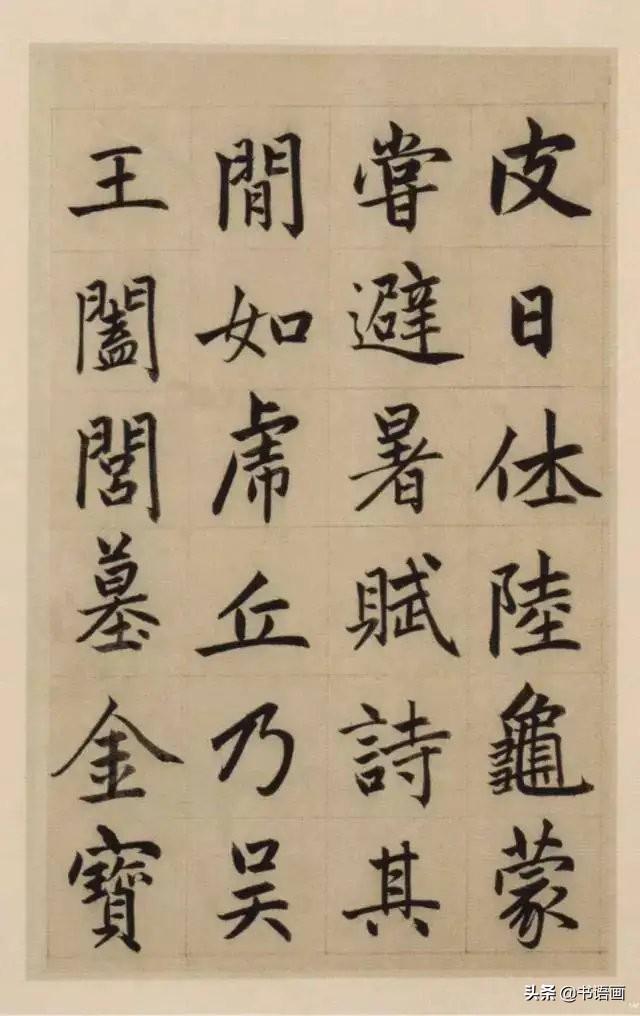 皮日休陸龜蒙
嘗避暑賦詩其
間如虎丘乃吳
王闔閭墓金寶
头条 @书语画